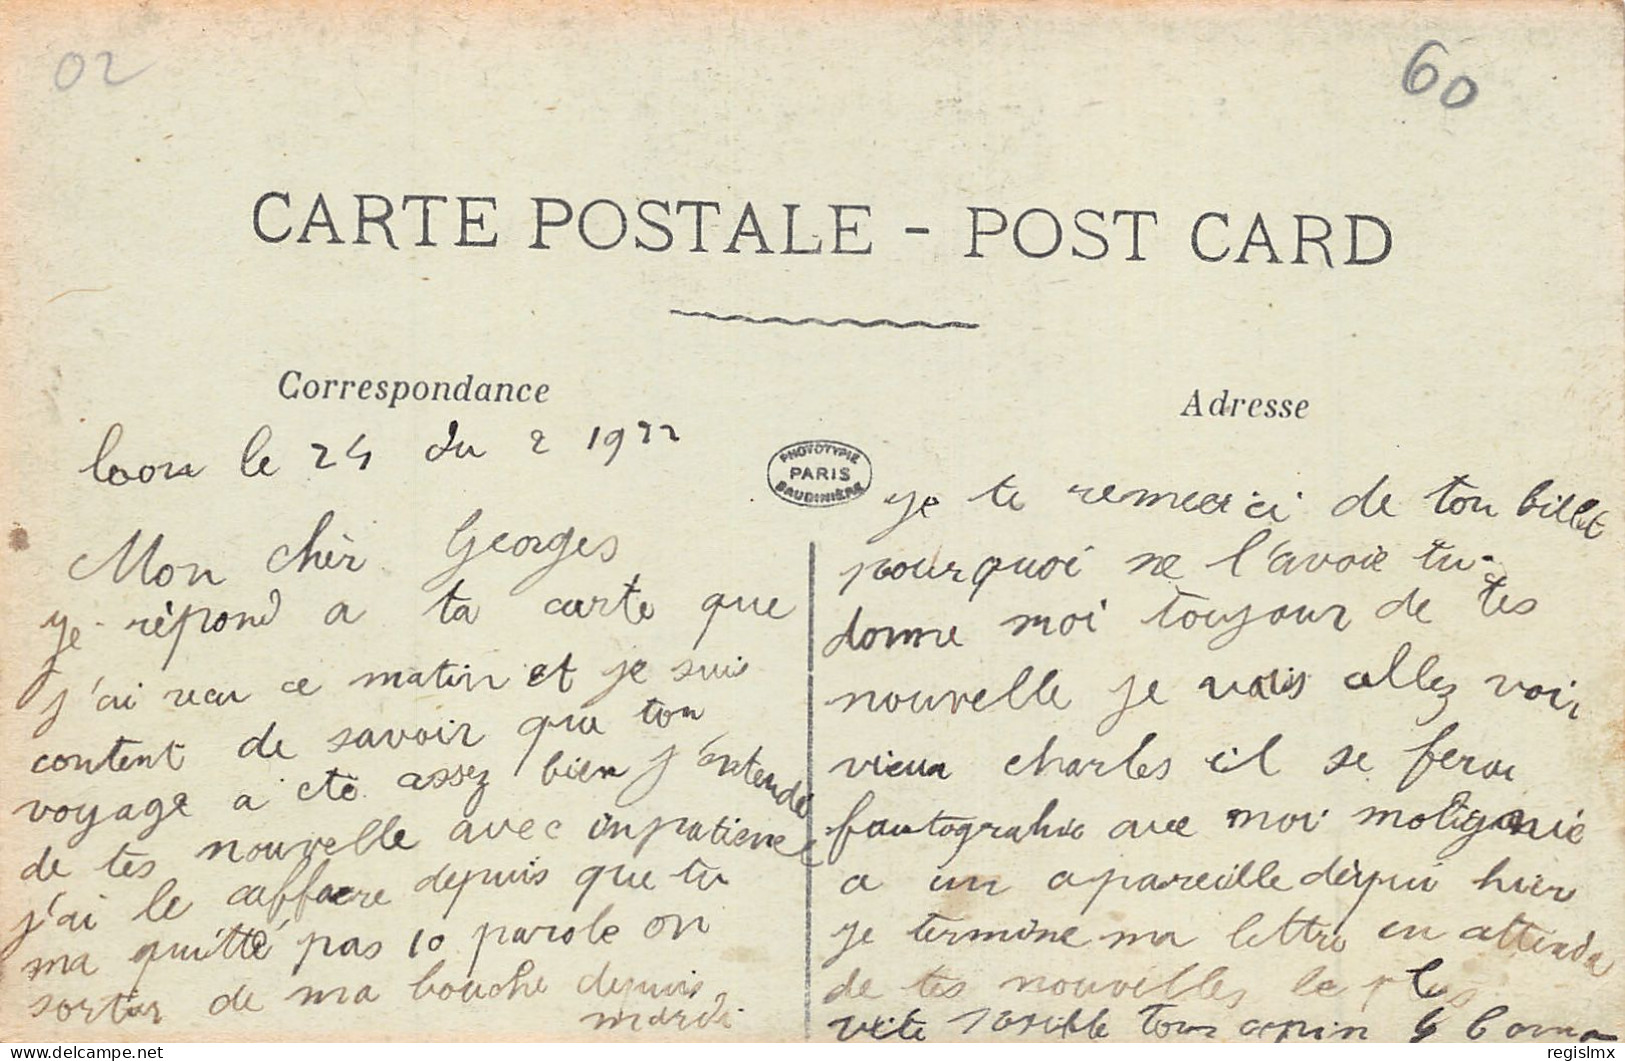 02
60
CARTE POSTALE - POST CARD
Correspondance
Laon le 24 du 2 1922
Mon chèr Georges
je répond a ta carte que
j'ai recu ce matin et je suis
content de savoir que ton
voyage a eté assez bien j'entendé
de tes nouvelle avec inpatience
j'ai le caffaere depuis que tu
ma quitté pas 10 parole on
sortur de ma bouche depuis
mardi
PHOTOTYPIE
PARIS
BAUDINIÈRE
Adresse
je te remerci de ton billet
pourquoi ne l'avoie tu
donne moi toujour de tes
nouvelle je vais allez voir
vieux charles il se ferai
fautograhie avec moi
a un apareille dèpui hier
je termine ma lettre en attenda
de tes nouvelles le plus
vite tom copin
delcampe.net
regislmx